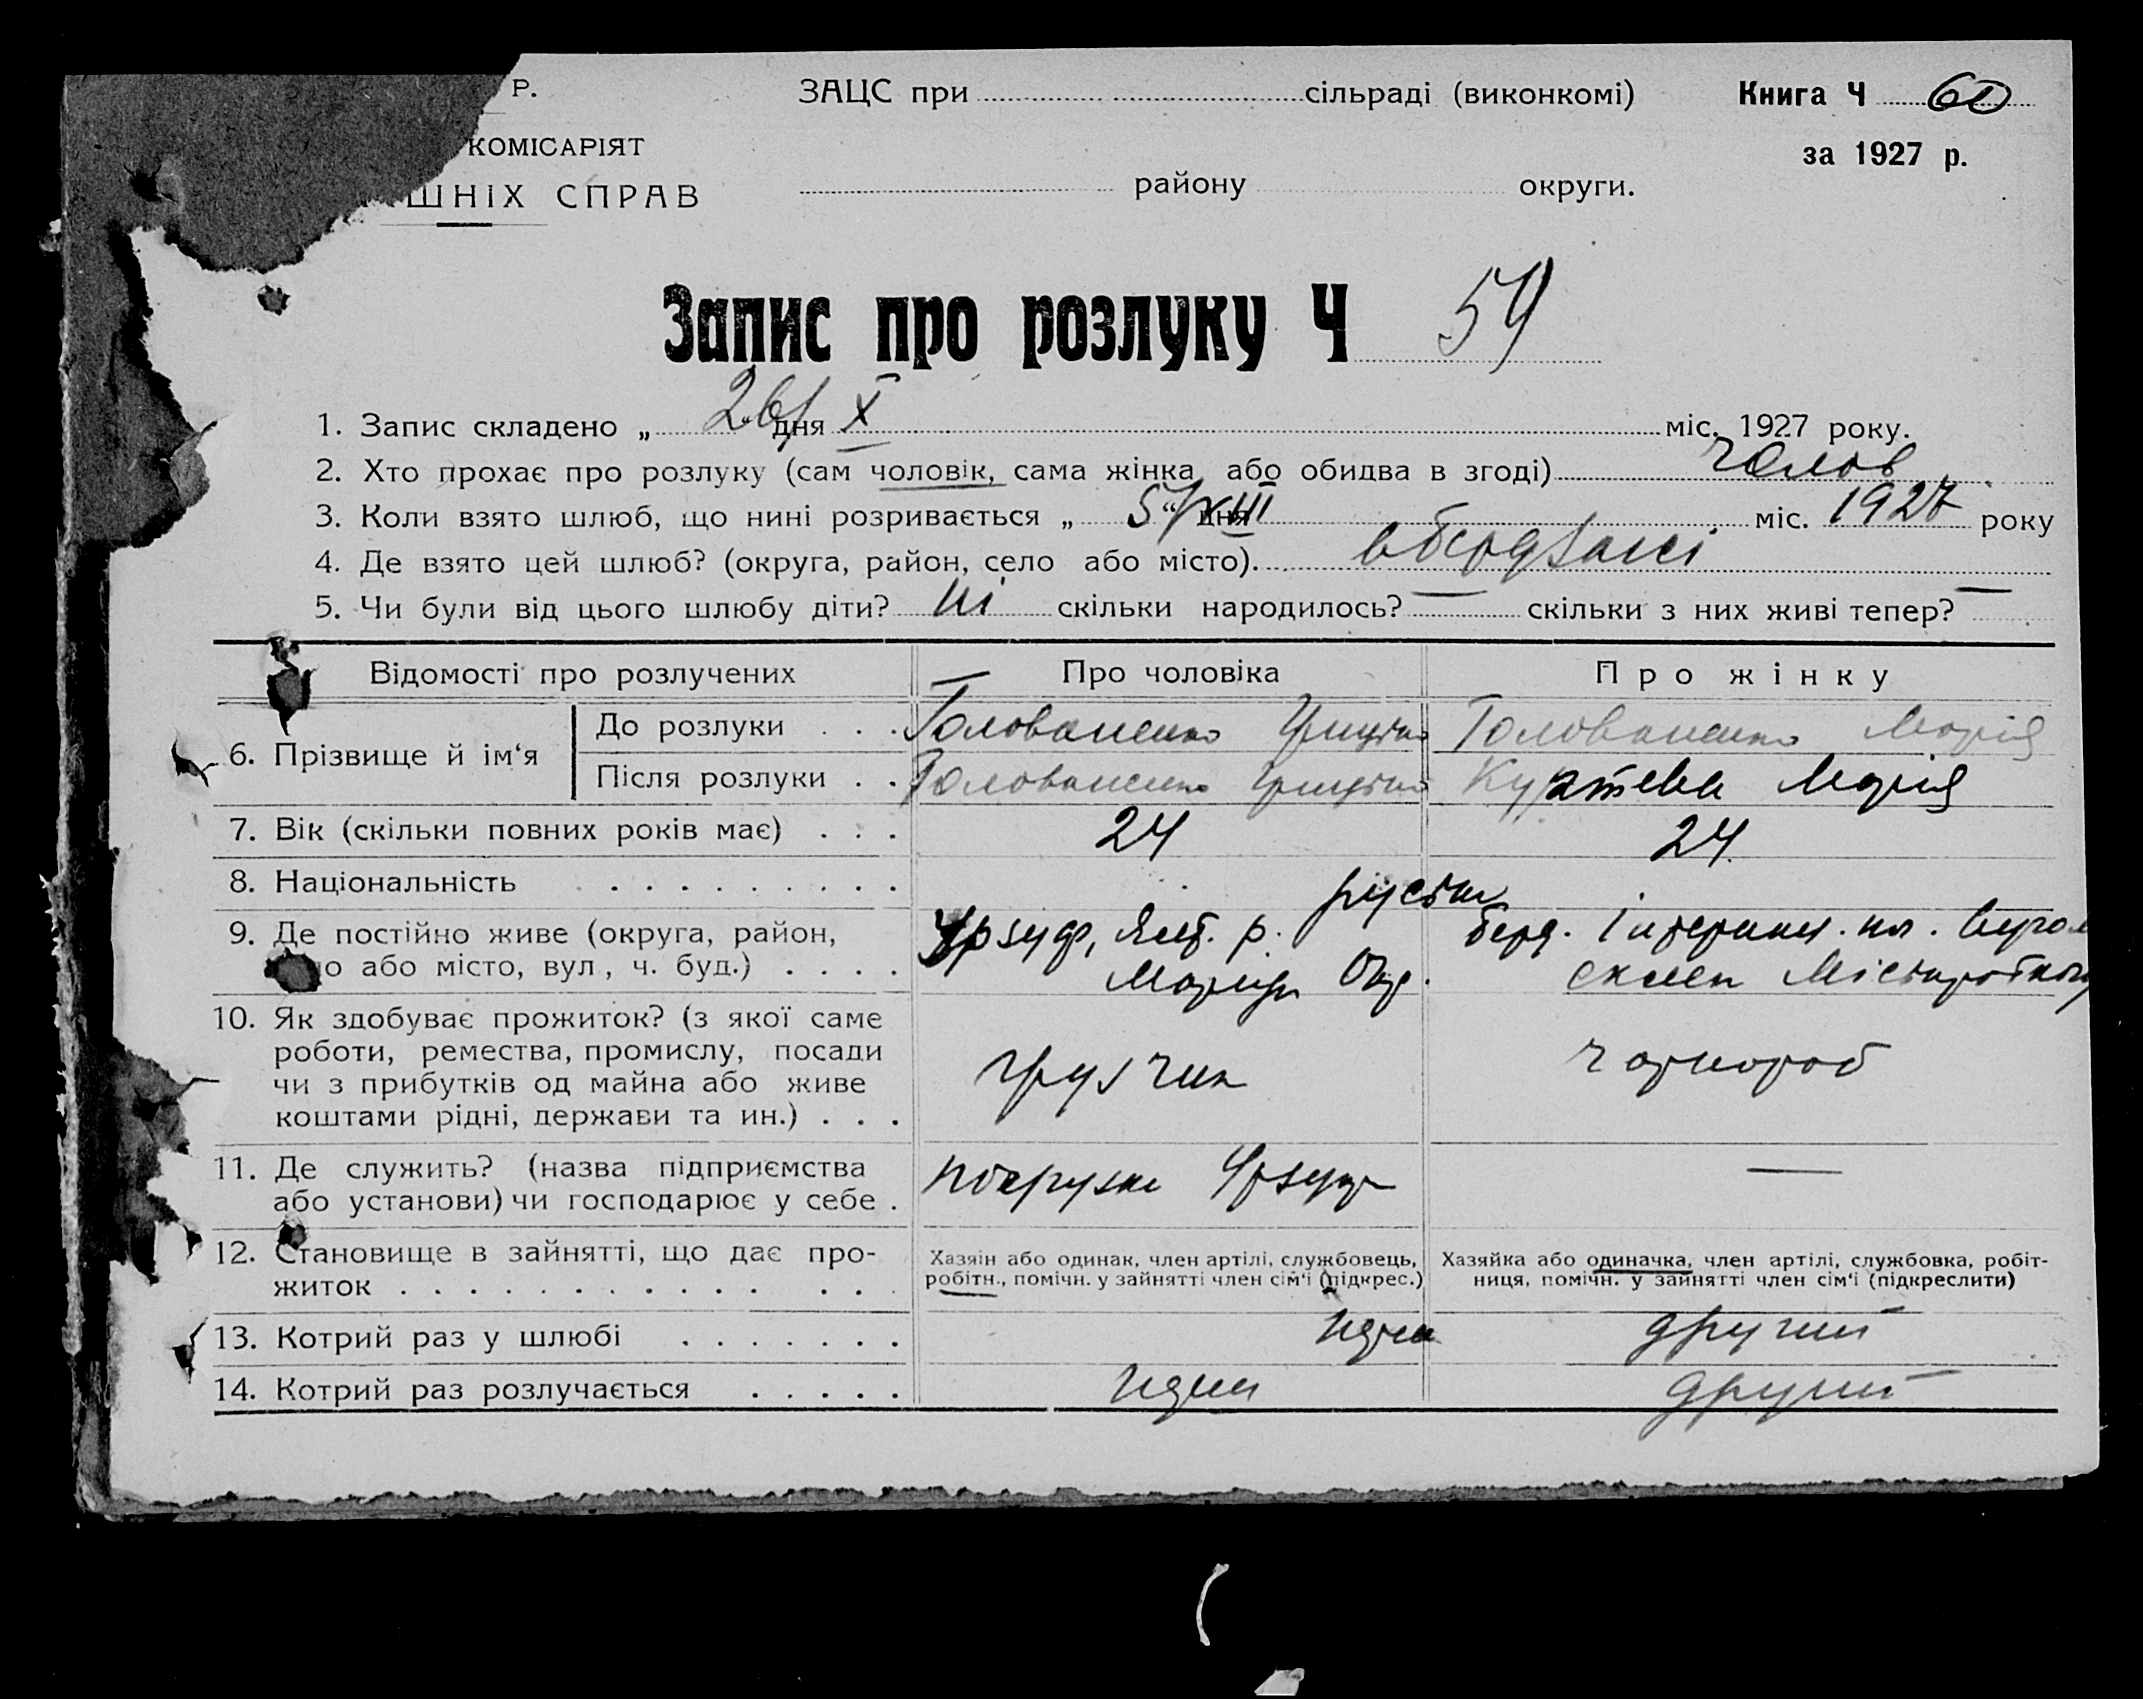 Р.
ЗАЦС при сільраді (виконкомі)
Книга Ч 60
КОМІСАРІЯТ
за 1927 р.
ШНІХ СПРАВ
району округи.
Запис про розлуку Ч 59
1. Запис складено „ 26 “ дня X міс. 1927 року.
2. Хто прохає про розлуку (сам чоловік, сама жінка або обидва в згоді) чолов
3. Коли взято шлюб, що нині розривається „ 5 “ дня міс. 1927 року
4. Де взято цей шлюб? (округа, район, село або місто).
5. Чи були від цього шлюбу діти? ні скільки народилось? — скільки з них живі тепер? —
Відомості про розлучених Про чоловіка Про жінку
6. Прізвище й ім‘я До розлуки . . . Голованенко Голованенко Марія
Після розлуки . . Голованенко Марія
7. Вік (скільки повних років має) . . . 24 24
8. Національність . . . . . . . . .
9. Де постійно живе (округа, район, Урзуф, р. Берд.
о або місто, вул, ч. буд.) . . . . Окр.
10. Як здобуває прожиток? (з якої саме
роботи, ремества, промислу, посади
чи з прибутків од майна або живе грузчик чорнороб
коштами рідні, держави та ин.) . . .
11. Де служить? (назва підприємства Урзуф —
або установи) чи господарює у себе .
12. Становище в зайнятті, що дає про- Хазяїн або одинак, член артілі, службовець, Хазяйка або одиначка, член артілі, службовка, робіт-
житок . . . . . . . . . . . . . . робітн., помічн. у зайнятті член сім‘ї (підкрес.) ниця, помічн. у зайнятті член сім‘ї (підкреслити)
13. Котрий раз у шлюбі . . . . . . . другий
14. Котрий раз розлучається . . . . . другий